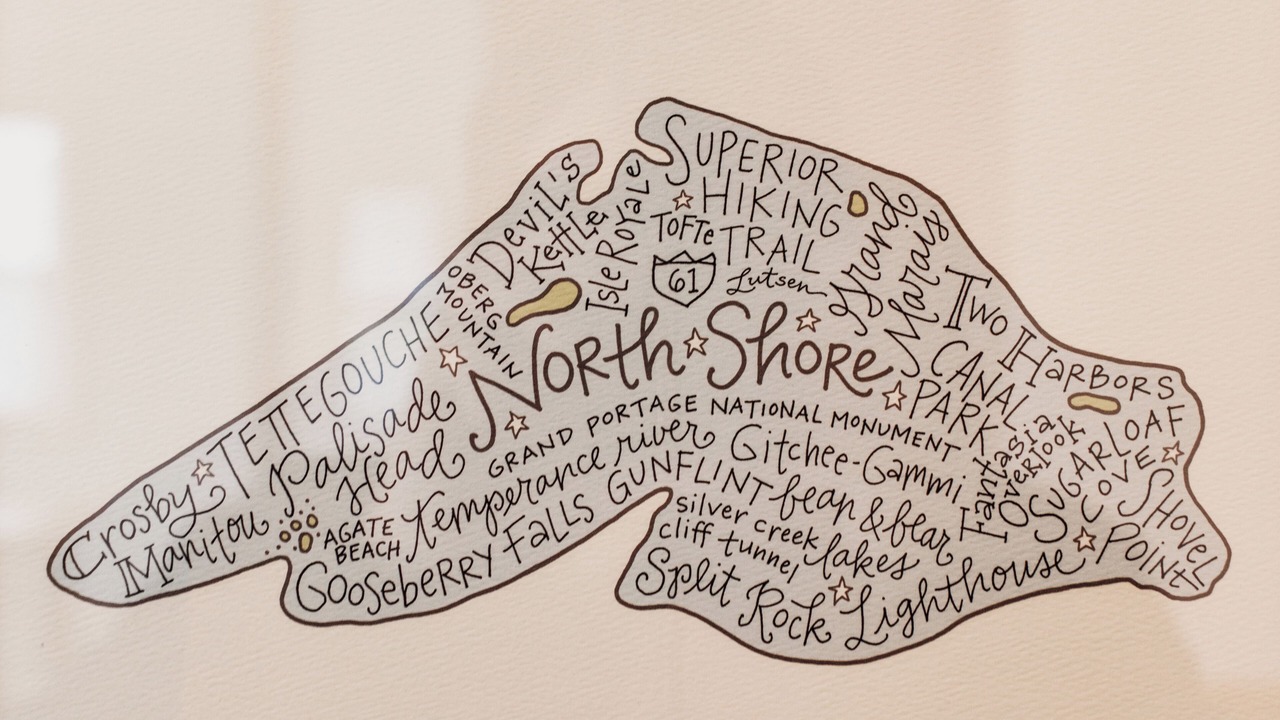 SUPERIOR
HIKING
TRAIL
DEVIL'S
KETTLE
Isle Royale
TOFTE
61
Lutsen
Grand
Marais
OBERG
MOUNTAIN
TWO HARBORS
NORTH SHORE
TETTEGOUCHE
CANAL
PARK
Palisade
Head
GRAND PORTAGE NATIONAL MONUMENT
Crosby
Manitou
AGATE
BEACH
Temperance river
Gitchee-Gammi
Fantasia
Overlook
SUGARLOAF
COVE
GOOSEBERRY FALLS
GUNFLINT
bean & bear
lakes
silver creek
cliff tunnel
SHOVEL
POINT
Split Rock Lighthouse